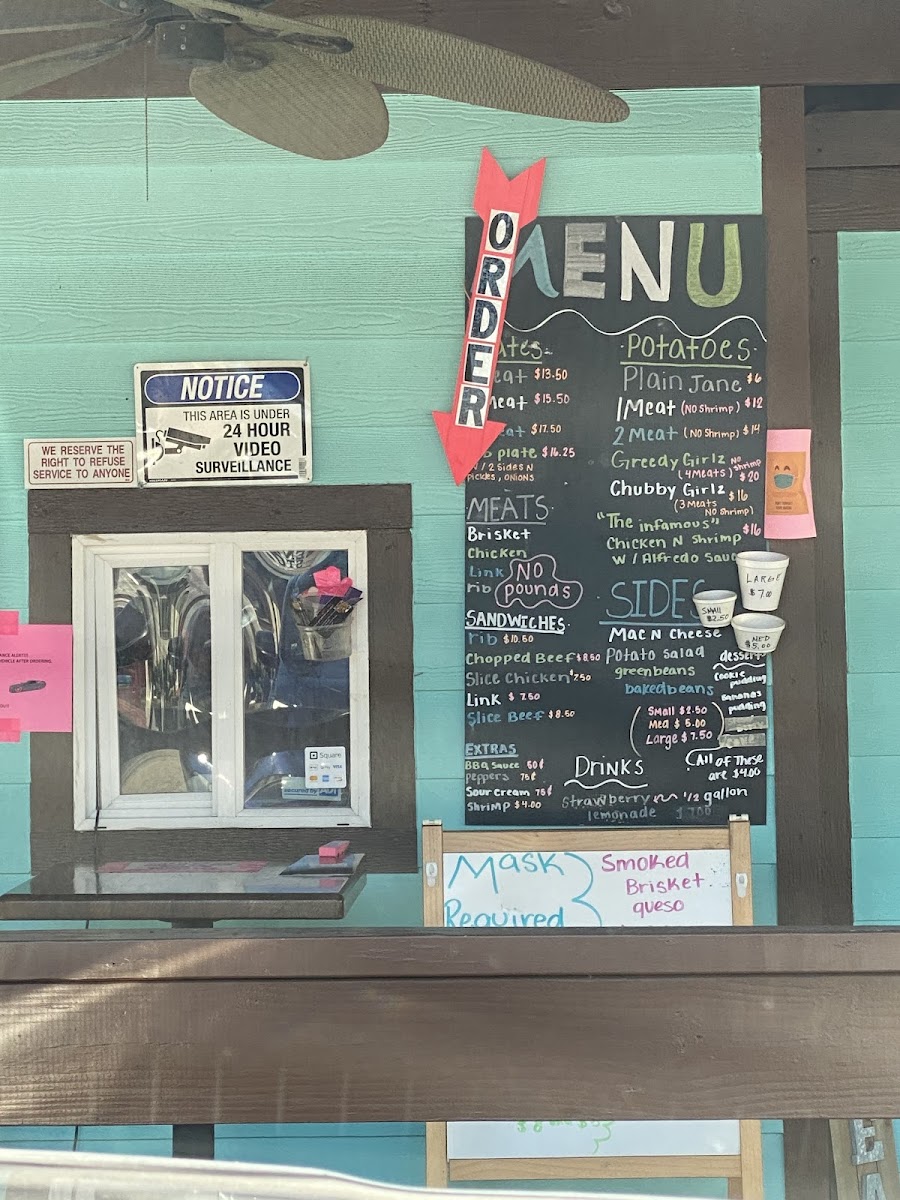 ORDER
MENU
Potatoes
Plain Jane $6
1 Meat (No Shrimp) $12
2 Meat (No Shrimp) $14
Greedy Girlz No Shrimp
(4 Meats) $20
Chubby Girlz $16
(3 Meats
No Shrimp)
"The infamous" $16
Chicken N Shrimp
W/ Alfredo Sauc
ates
eat $13.50
eat $15.50
eat $17.50
plate $16.25
w/ 2 Sides N
pickles, onions
MEATS
Brisket
Chicken
Link
rib
NO
pounds
SANDWICHES
rib $10.50
Chopped Beef $8.50
Slice Chicken $7.50
Link $7.50
Slice Beef $8.50
EXTRAS
BBQ Sauce 50¢
Peppers 75¢
Sour Cream 75¢
Shrimp $4.00
SIDES
Mac N Cheese
Potato Salad
greenbeans
bakedbeans
Small $2.50
Med $5.00
Large $7.50
LARGE
$7.00
SMALL
$2.50
MED
$5.00
dessert
Cookie
pudding
Bananas
pudding
(All of These
are $4.00
Drinks
Strawberry 1/2 gallon
lemonade
NOTICE
THIS AREA IS UNDER
24 HOUR
VIDEO
SURVEILLANCE
WE RESERVE THE
RIGHT TO REFUSE
SERVICE TO ANYONE
Square
VISA
Secured by ADT
Mask
Required
Smoked
Brisket
queso